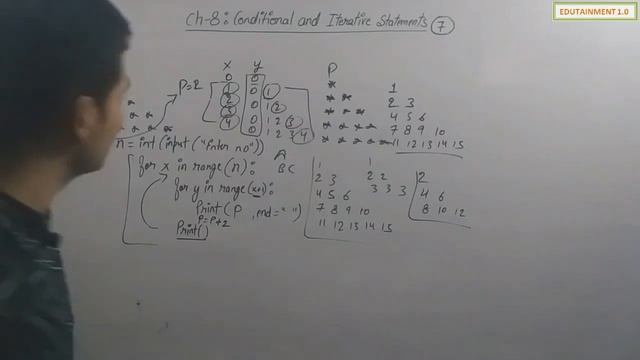 EDUTAINMENT 1.0
Ch-8: Conditional and Iterative Statements 7
x y
0 0
1 0 1
2 0 1 2
3 0 1 2 3
4 0 1 2 3 4
P=2
n = int(input("Enter no"))
for x in range(n):
for y in range(x+1):
Print(P ,end=" ")
P=P+2
Print()
A
B C
P
*
* *
* * *
* * * *
* * * * *
1
2 3
4 5 6
7 8 9 10
11 12 13 14 15
1
2 3
4 5 6
7 8 9 10
11 12 13 14 15
1
2 2
3 3 3
2
4 6
8 10 12